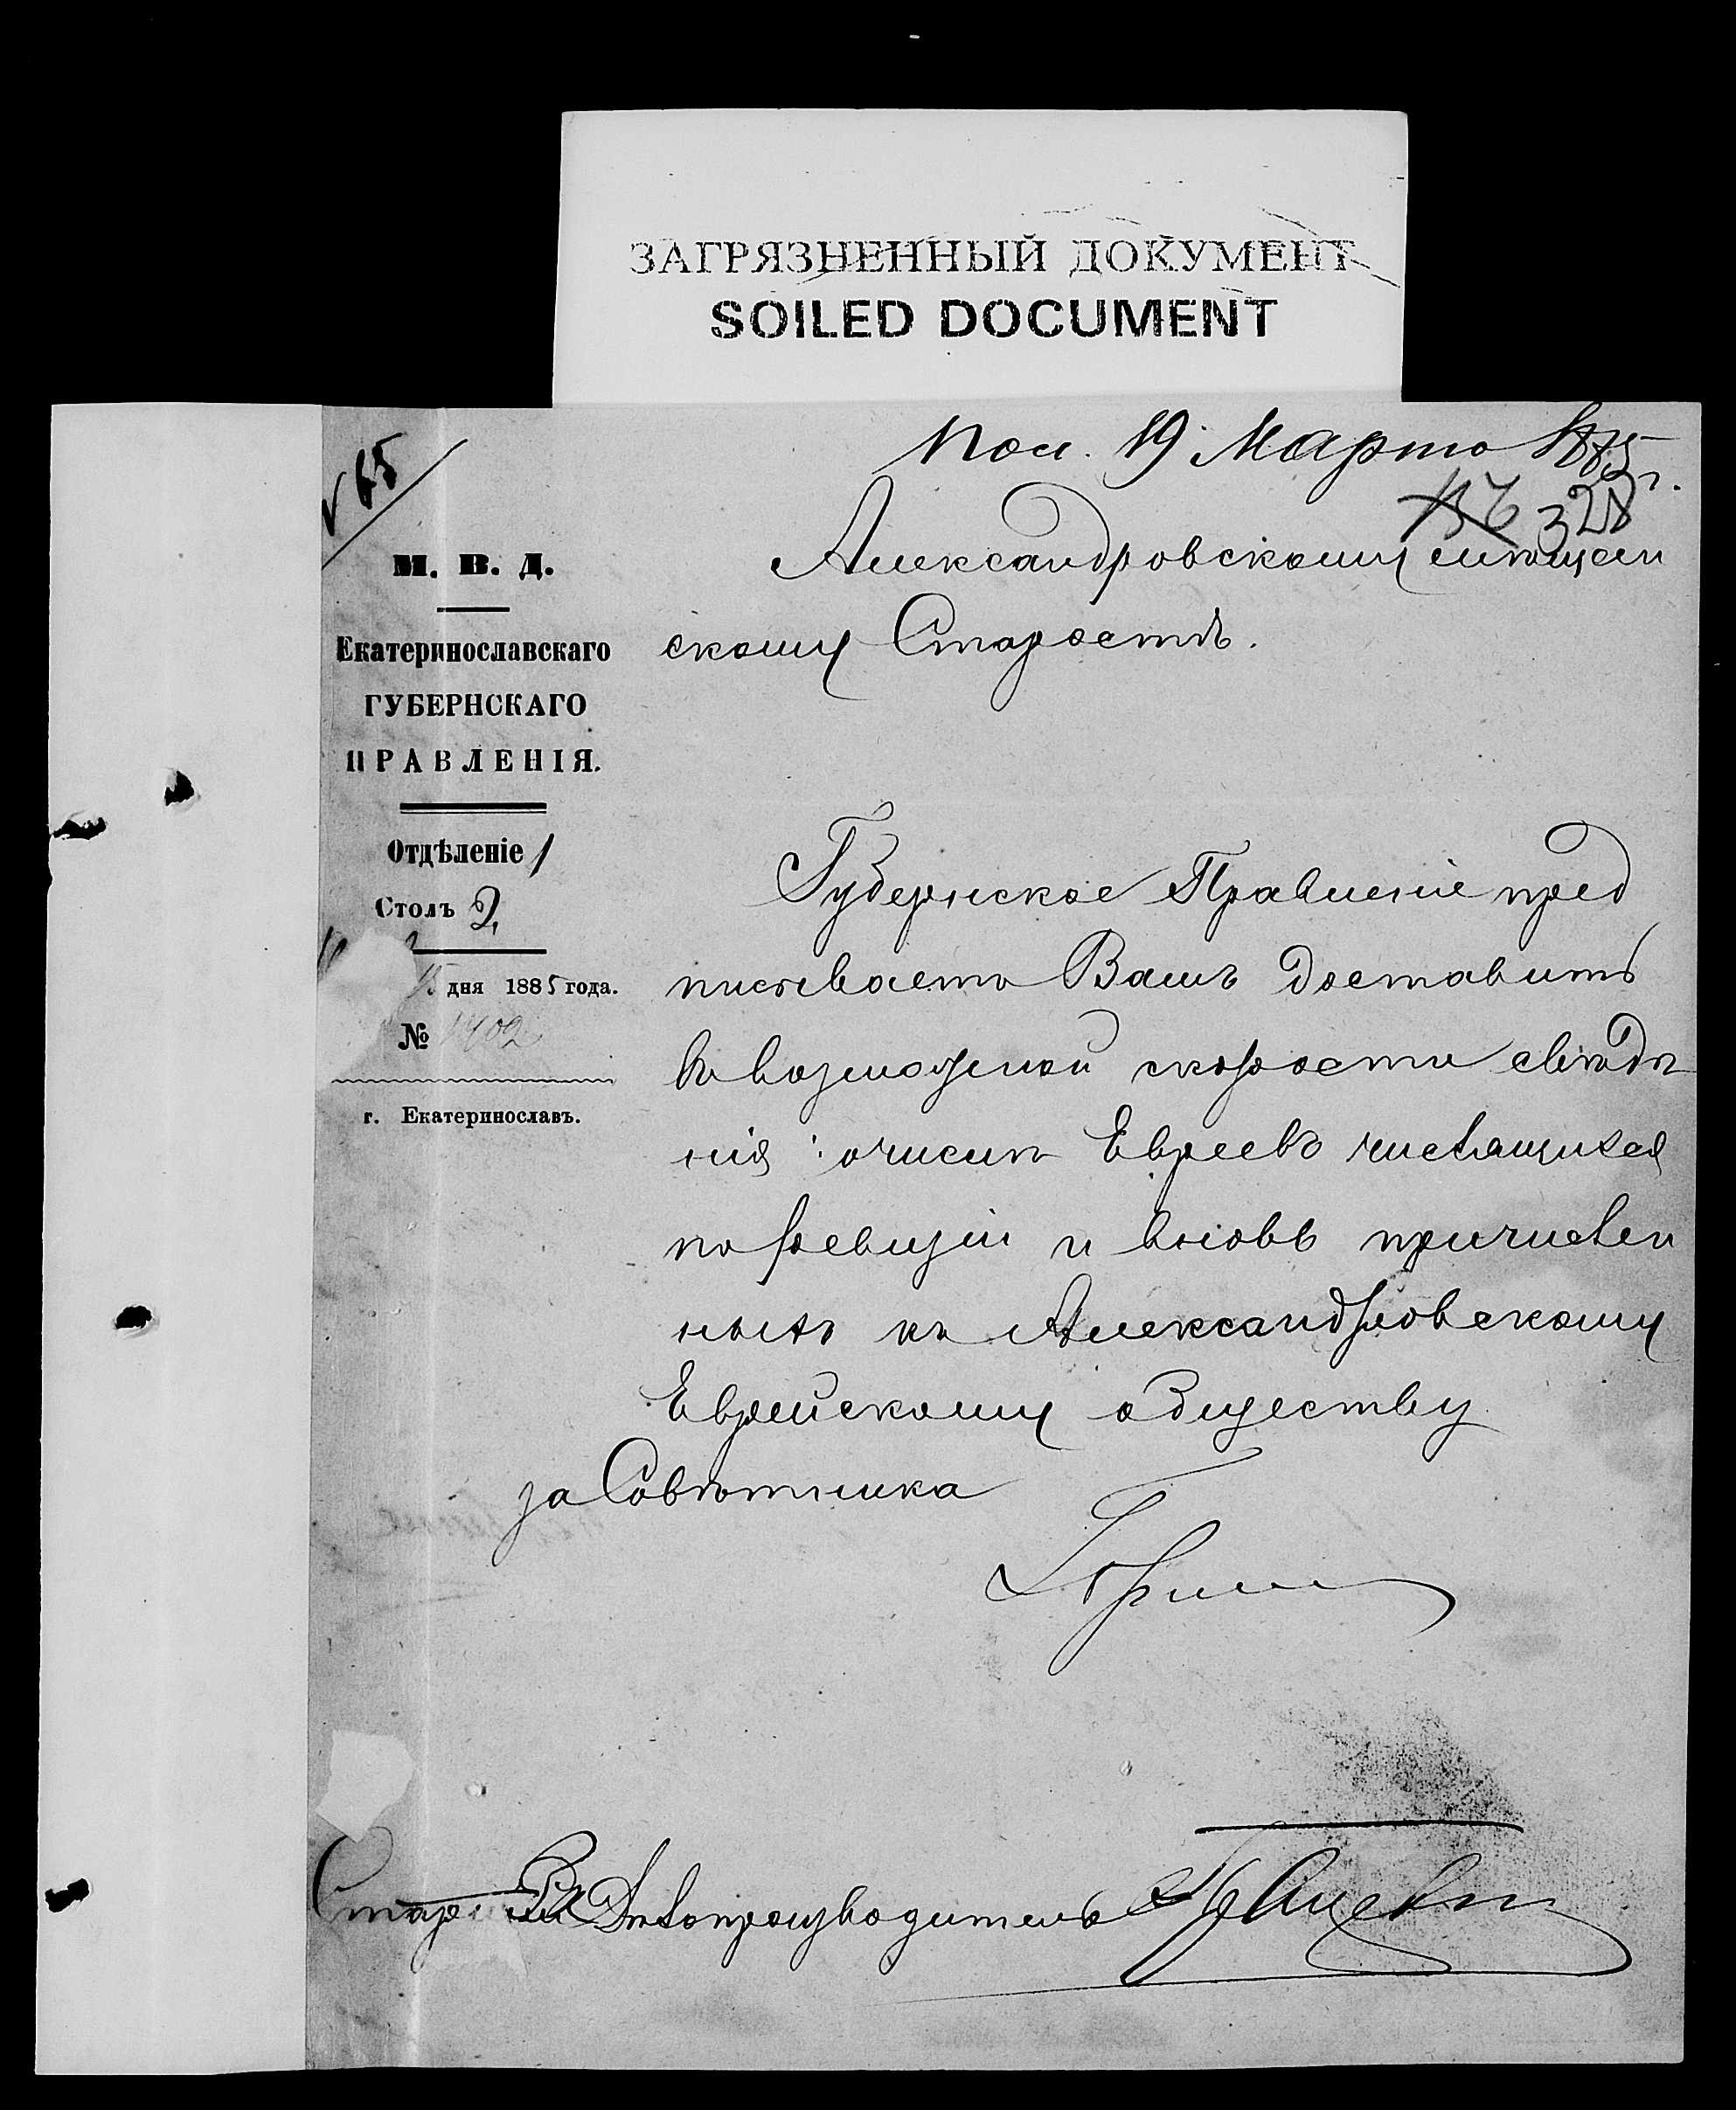 ЗАГРЯЗНЕННЫЙ ДОКУМЕНТ
SOILED DOCUMENT
Пол. 19 Марта 1885 г.
65
156 328
М. В. Д.
Екатеринославскаго
ГУБЕРНСКАГО
ПРАВЛЕНІЯ.
Отдѣленіе 1
Столъ 2
15 дня 1885 года.
№ 1402
г. Екатеринославъ.
Александровскому мѣщан
скому Старостѣ.
Губернское Правленіе пред
писываетъ Вамъ доставить
въ возможной скорости свѣдѣ
нія: о числѣ Евреевъ числящихся
по ревизіи и вновь причислен
ныхъ къ Александровскому
Еврейскому обществу
за Совѣтника
Делопроизводитель